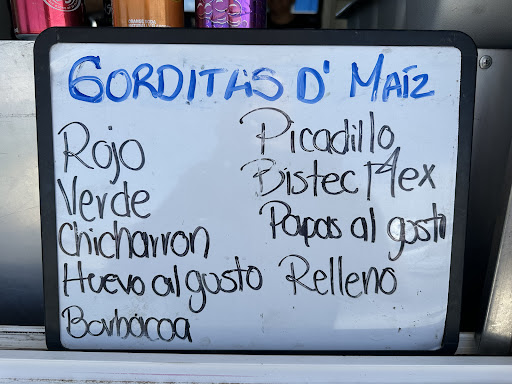 GORDITAS D' MAÍZ
Rojo
Verde
Chicharron
Huevo al gusto
Barbacoa
Picadillo
Bistec Mex
Papas al gusto
Relleno